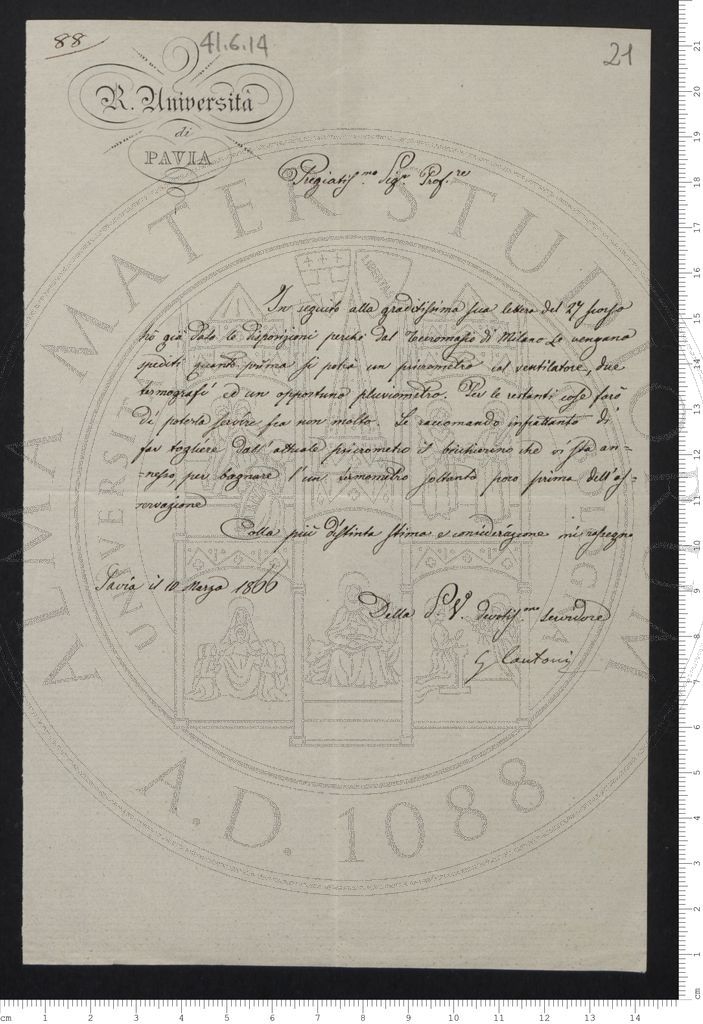 88
41.6.14
21
R. Università
di
PAVIA
Pregiatiss.mo Sig.r Prof.re
In seguito alla graditissima sua lettera del 27 scorso
hò già dato le disposizioni perché dal Tecnomasio di Milano Le vengano
spediti quanto prima si potrà un psicrometro col ventilatore, due
termografi ed un opportuno pluviometro. Per le restanti cose farò
di poterla servire fra non molto. Le raccomando infrattanto di
far togliere dall'attuale psicrometro il bicchierino che vi sta an-
-nesso, per bagnare l'un termometro soltanto poco prima dell'os-
servazione
Colla più distinta stima e considerazione mi rassegno
Pavia il 10 Marzo 1866
Della S. V. devotiss.mo servidore
G Cantoni
ALMA MATER STUDIORUM
A.D. 1088